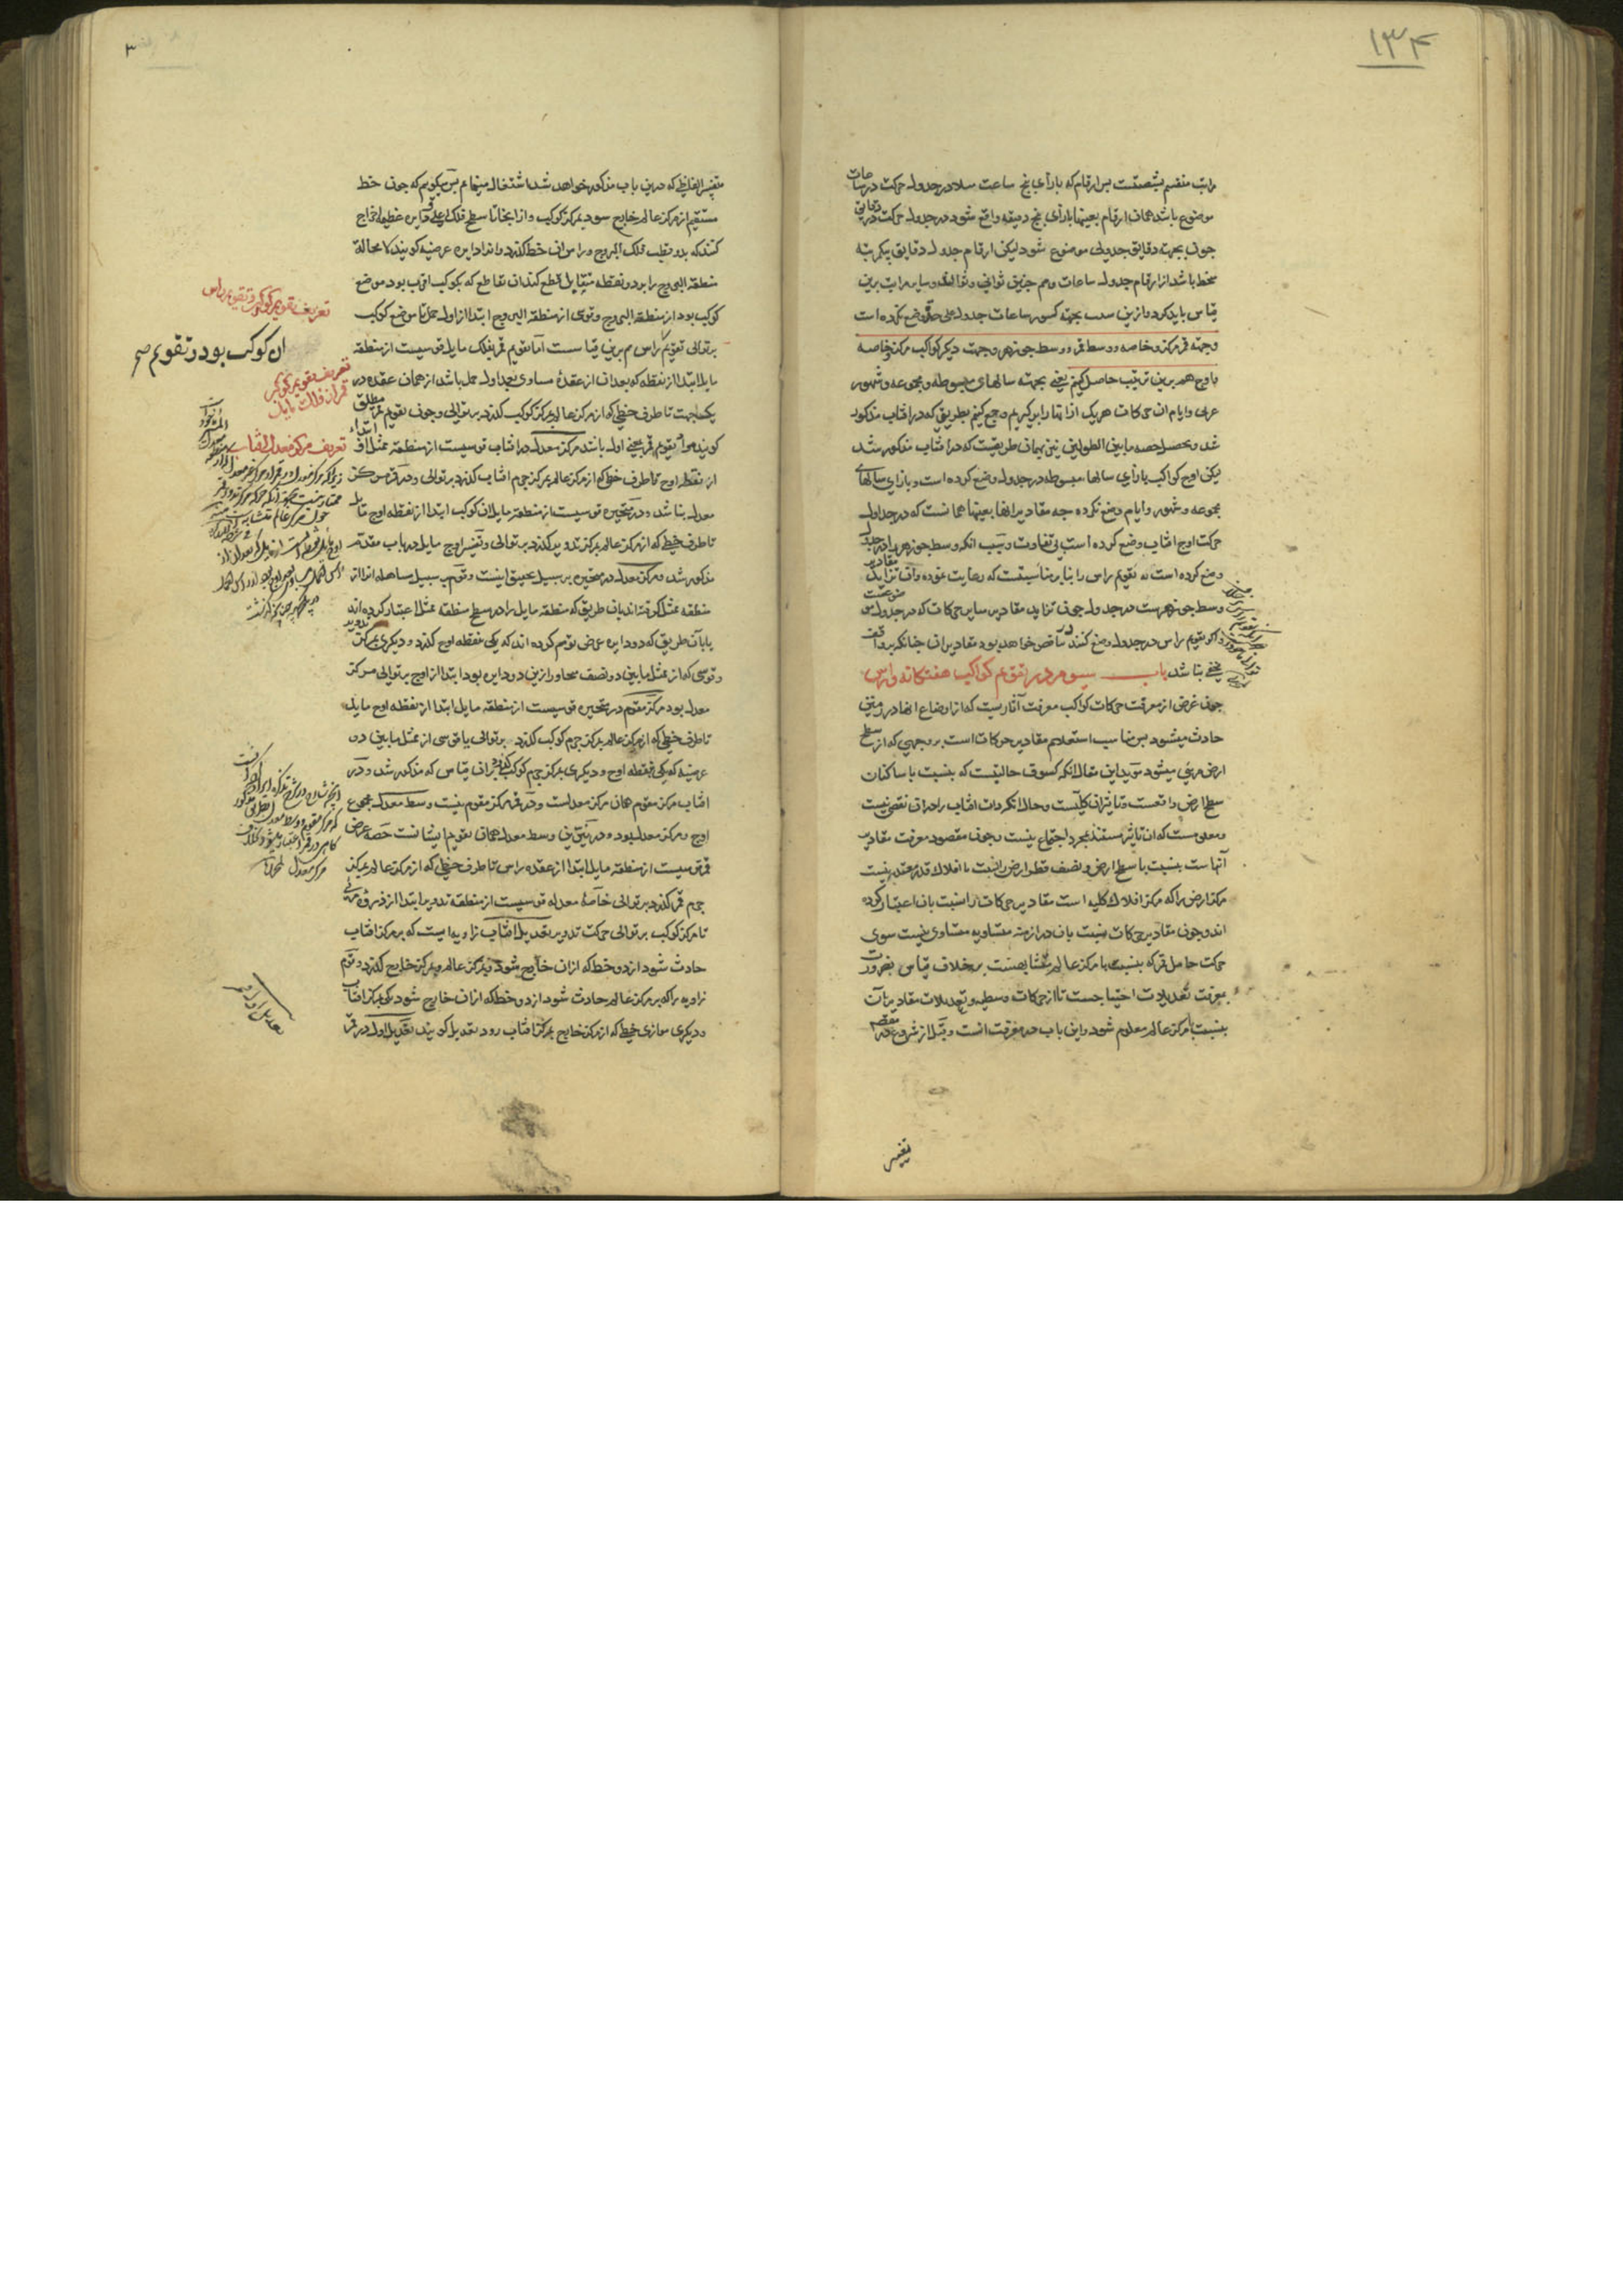 ١٣۴
مراتب منقسم بشصتست بس ارقام که بازأی پنج ساعت مثلا در جدول حرکت در ساعات
موضوع باشد همان ارقام بعینها بازأی پنج دقیقه واقع شود در جدول حرکت در دقایق
جون بجهت دقایق جدولی موضوع شود لیکن ارقام جدول دقایق بیکمرتبه
منحط باشد از ارقام جدول ساعات وهم جنین ثوانی وثوالث وسایر مراتب برین
قیاس باید کرد وازین سبب بجهة کسور ساعات جدول علی حده وضع نکرده است
وجهة قمر مرکز وخاصه ووسط قمر ووسط جوزهر وجهت دیکر کواکب مرکز وخاصه
واوج هم برین ترتیب حاصل کنیم یعنی بجهته سالهای مبسوطه ومجموعه وشهور
عربی وایام ان حرکات هریک از انها را برکیریم وجمع کنیم بطریقی که در افتاب مذکور
شد وتحصیل حصه مابین الطولین نیز بهمان طریقست که در افتاب مذکور شد
لیکن اوج کواکب بازأی سالهاء مبسوطه در جدول وضع کرده است وبازای سالهای
مجموعه وشهور وایام وضع نکرده جه مقادیر انها بعینها همانست که در جداول
حرکت اوج افتاب وضع کرده است بی تفاوت وسبب انکه وسط جوزهر را در جدول
وضع کرده است نه تقویم راس را بنابر مناسبتست که رعایت نموده وان تزاید مقادیر
وسط جوزهرست در جدول جون تزاید مقادیر سایر حرکات که در جدول موضوعست
واکر تقویم راس در جدول وضع کنند متناقص خواهد بود مقادیر ان جنانکه بر واقف
مخفی نباشد باب سیوم در تقویم کواکب هفتکانه وراس
جون غرض از معرفت حرکات کواکب معرفت آثاریست که از اوضاع انها در زمین
حادث میشود بس مناسب استعلام مقادیر حرکات است بر وجهی که از سطح
ارض مرئی میشود موید این مقال انکه کسوف حالیتست که بنسبت با ساکنان
سطح ارض واقعست وتاثیر ان کلیست وحال انکه ذات افتاب را در ان نقصی نیست
ومعلومست که ان تاثیر مستند بمجرد اجتماع نیست وجون مقصود معرفت مقادیر
آنهاست بنسبت با سطح ارض ونصف قطر ارض را نسبت با افلاک قدر معتدبه نیست
مرکز ارض را که مرکز افلاک کلیه است مقادیر حرکات را نسبت بان اعتبار کرده
اند وجون مقادیر حرکات بنسبت بان در ازمنه متساویه متساوی نیست سوی
حرکت حامل قمر که بنسبت با مرکز عالم متشابهست بر خلاف قیاس بضرورت
بمعرفت تعدیلات احتیاجست تا از حرکات وسطیه وتعدیلات مقادیر آن
بنسبت با مرکز عالم معلوم شود واین باب در معرفت انست وقبل از شروع در مقصد
تفسیر
٣
تفسیر الفاظی که درین باب مذکور خواهد شد اشتغال مینمایم بس میکویم که جون خط
مستقیم از مرکز عالم خارج شود بمرکز کوکب واز انجا تا سطح فلک اعلی ودایره عظیمه اخراج
کنند که بدو قطب فلک البروج وراس ان خط کذرد وانرا دایره عرضیه کویند لا محاله
منطقة البروج را بدو نقطه متقابل قطع کند ان تقاطع که بکوکب اقرب بود موضع
کوکب بود از منطقة البروج وقوسی از منطقة البروج ابتدا از اول حمل تا موضع کوکب
بر توالی تقویم ان کوکب بود وتقویم صح
راس هم برین قیاسست اما تقویم قمر بفلک مایل قوسیست از منطقه
مایل ابتدا از نقطه که بعد ان از عقدۀ مساوی بعد اول حمل باشد از همان عقده در
یکجهت تا طرف خطی که از مرکز عالم بمرکز کوکب کذرد بر توالی وجون تقویم قمر مطلق
کویند مراد تقویم قمر بمعنی اول باشد مرکز معدل در افتاب قوسیست از منطقه ممثل او ابتداء
از نقطه اوج تا طرف خطی که از مرکز عالم بمرکز جرم افتاب کذرد بر توالی ودر قمر مرکز
معدل نباشد ودر متحیره قوسیست از منطقه مایل ان کوکب ابتدا از نقطه اوج مایل
تا طرف خطی که از مرکز عالم بمرکز تدویر کذرد بر توالی وتفسیر اوج مایل در باب مقدم
مذکور شد ومرکز معدل در متحیره بر سبیل تحقیق اینست وقوم بر سبیل مساهله انرا از
منطقه ممثل کرفته اند بان طریق که منطقه مایل را در سطح منطقه ممثل اعتبار کرده اند
یا بآن طریق که دو دایره عرضی توهم کرده اند که یکی بنقطه اوج کذرد ودیکری بمرکز تدویر
وقوسی که از ممثل مابین دو نصف متجاور ازین دو دایره بود ابتدا از اوج بر توالی مرکز
معدل بود مرکز مقوم در متحیره قوسیست از منطقه مایل ابتدا از نقطه اوج مایل
تا طرف خطی که از مرکز عالم بمرکز جرم کوکب کذرد بر توالی یا قوسی از ممثل مابین دو
عرضیه که یکی بنقطه اوج ودیکری بمرکز جرم کوکب کذرد بر ان قیاس که مذکور شد ودر
افتاب مرکز مقوم همان مرکز معدلست ودر قمر مرکز مقوم نیست وسط معدل مجموع
اوج ومرکز معدل بود ودر نیرین وسط معدل همان تقویم ایشانست حصه عرض
قمر قوسیست از منطقه مایل ابتدا از عقده راس تا طرف خطی که از مرکز عالم بمرکز
جرم قمر کذرد بر توالی خاصۀ معدله قوسیست از منطقه تدویر ابتدا از ذروه مرئی
تا مرکز کوکب بر توالی حرکت تدویر تعدیل افتاب زاویه ایست که بر مرکز افتاب
حادث شود از دو خط که از ان خارج شود وبمرکز عالم وبمرکز خارج کذرد وقوم
زاویه را که بر مرکز عالم حادث شود از دو خط که از ان خارج شود یکی بمرکز افتاب
ودیکری موازی خطی که از مرکز خارج بمرکز افتاب رود تعدیل کویند تعدیل اول در قمر
تعریف تقویم کوکب وتقویم راس
تعریف تقویم کوکب
قمر از فلک مایل
تعریف مرکز معدل افتاب